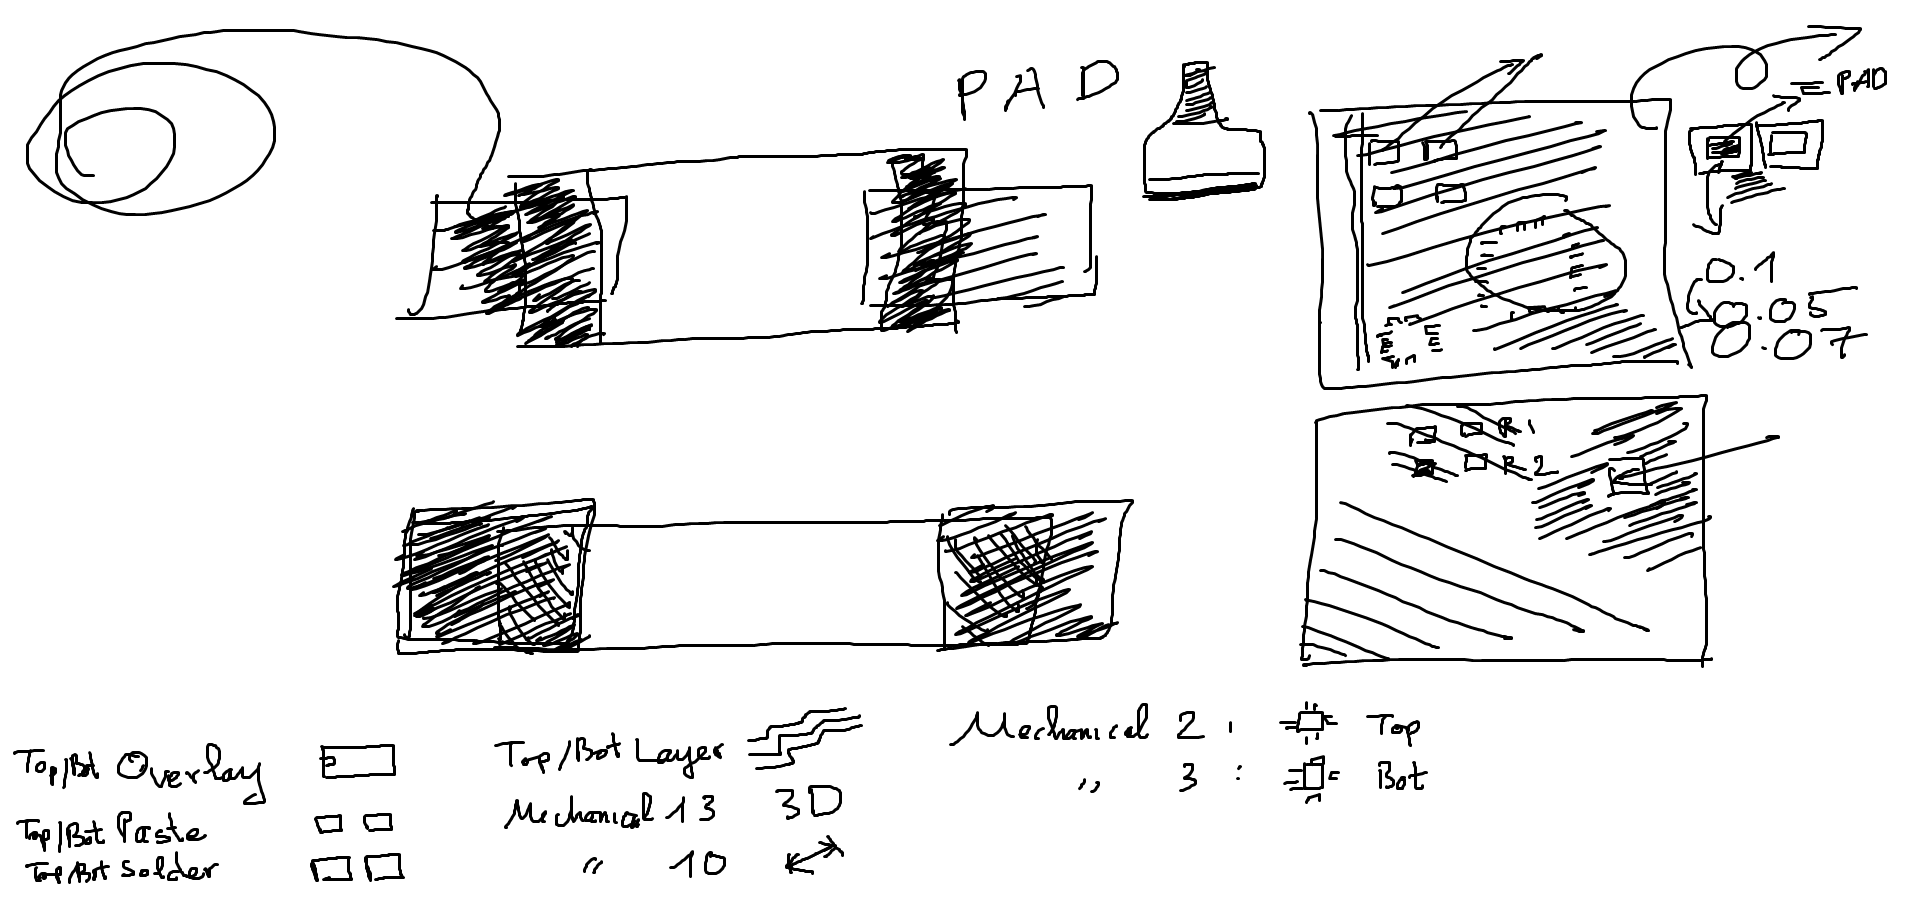 PAD
= PAD
0.1
0.05
0.07
R1
R2
Top/Bot Overlay
Top/Bot Paste
Top/Bot Solder
Top/Bot Layer
Mechanical 13 3D
" 10
Mechanical 2 : Top
" 3 : Bot